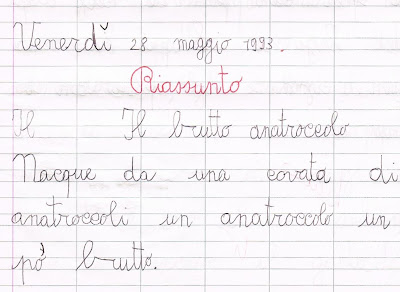 Venerdì 28 maggio 1993.
Riassunto
Il Il brutto anatroccolo
Nacque da una covata di
anatroccoli un anatroccolo un
pò brutto.